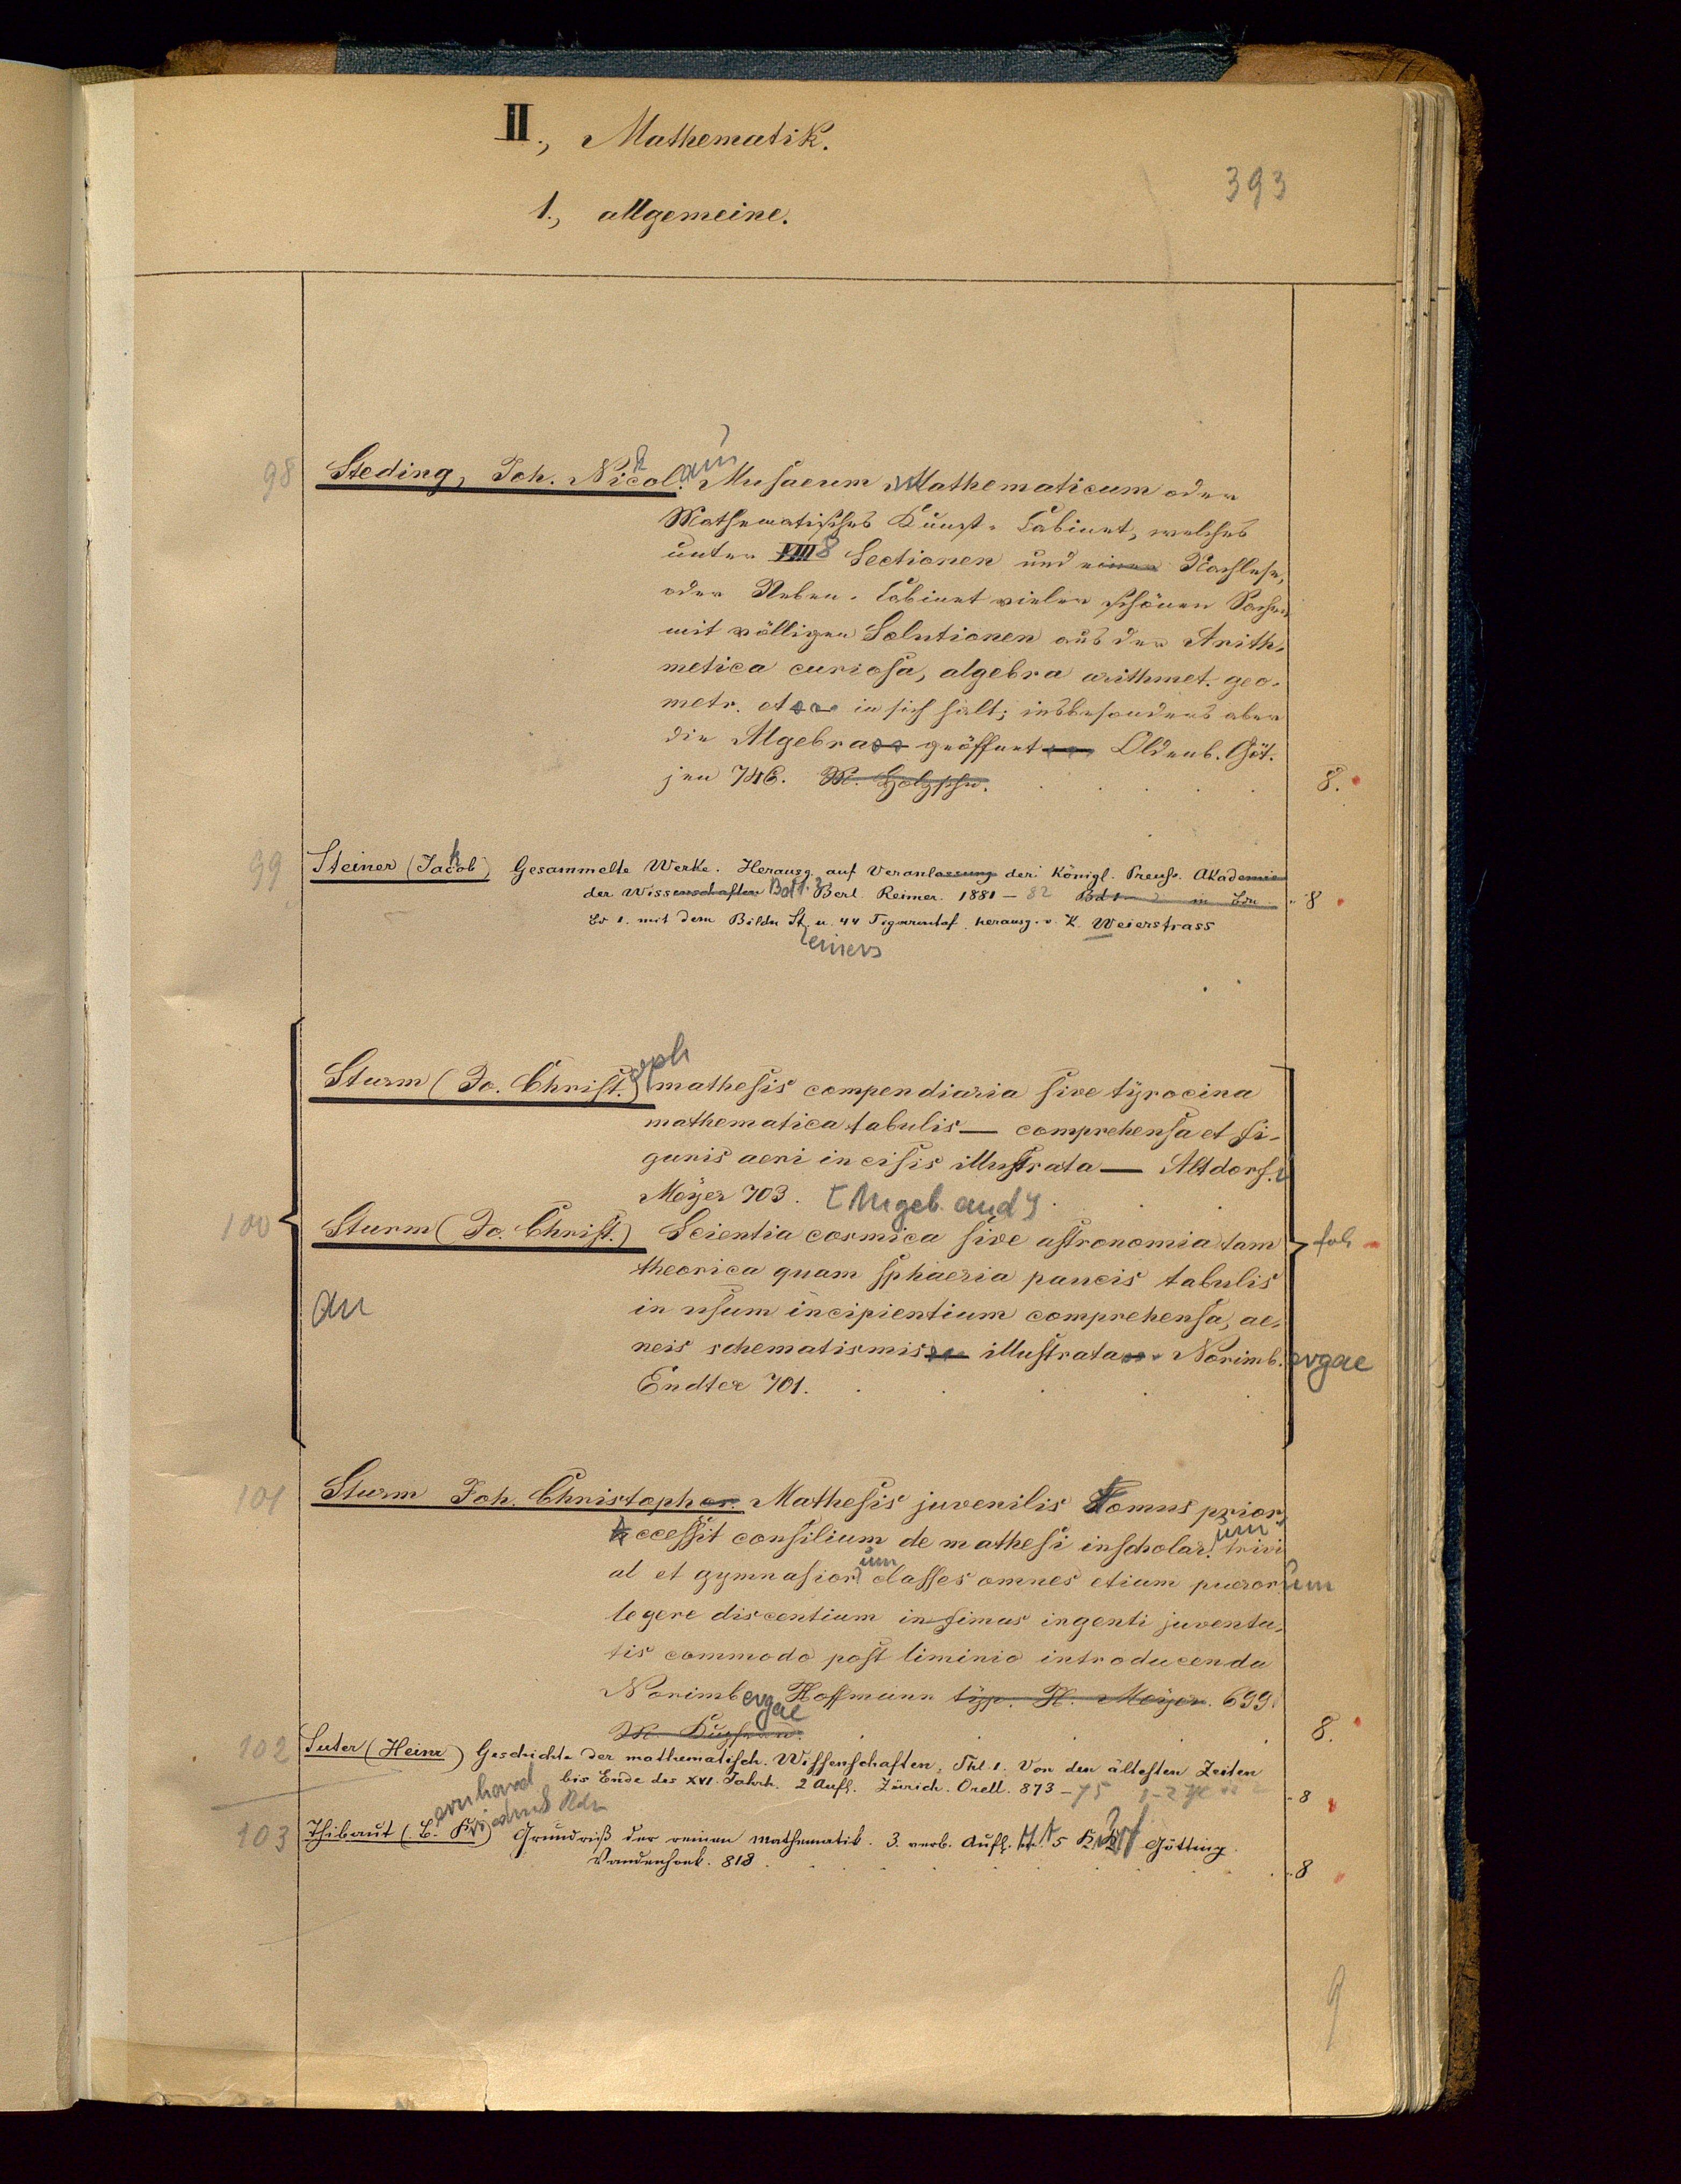 II., Mathematik.
393
1., allgemeine.
98 Steding, Joh. Nicol. Musaeum Mathematicum oder
Mathematisches Kunst-Cabinet, welches
unter VIII 8 Sectionen und einen Nachlese,
oder Neben-Cabinet vieler schönen Sachen
mit völligen Solutionen aus der Arith-
metica curiosa, algebra arithmet. geo-
metr. et in sich hält; insbesonders aber
die Algebra geöffnet Oldenb. Göt-
jen 746. 8.
99 Steiner (Jacob) Gesammelte Werke. Herausg. auf Veranlassung der Königl. Preuss. Akademie
der Wissenschaften Bd 1.2 Berl. Reimer. 1881-82 Bd 1-2 8
Bd 1. mit dem Bilde St. u. 44 Figurentaf. herausg. v. K. Weierstrass
einers
oph
Sturm (Jo. Christ.) mathesis compendiaria sive tyrocina
mathematica tabulis — comprehensa et fi-
guris aeri incisis illustrata — Altdorf.
Meyer 703. [Angeb. and]
100 Sturm (Jo. Christ.) Scientia cosmica sive astronomia tam fol
theorica quam sphaeria paucis tabulis
an in usum incipientium comprehensa, ae-
neis schematismis illustrata Norimb. ergae
Endter 701.
101 Sturm Joh. Christopher. Mathesis juvenilis Tomus prior
Accessit consilium de mathesi in scholar. um trivi
al et gymnasior um classes omnes etium pueror um
legere discentium infimas ingenti juventu-
tis commodo post liminio introducenda
Norimb ergae Hoffmann typ. H. Meyer. 699.
8.
102 Suter (Heinr) Geschichte der mathematisch. Wissenschaften, Thl. 1. Von den ältesten Zeiten
bis Ende des XVI. Jahrh. 2 Aufl. Zürich. Orell. 873-75 8
ernhard
103 Thibaut (B. Friedrich) Grundriß der reinen Mathematik. 3. verb. Aufl. M. 5 Götting.
Vandenhoek. 818 8
9